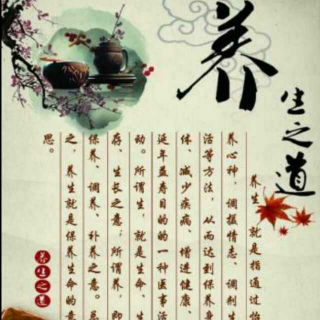 养
生之道
养生，就是指通过怡
养心神，调摄情志、调剂生
活等方法，从而达到保养身
体、减少疾病、增进健康、
延年益寿目的的一种医事活
动。所谓生，就是生命、生
存、生长之意；所谓养，即
保养、调养、补养之意。总
之，养生就是保养生命的意
思。
养生之道